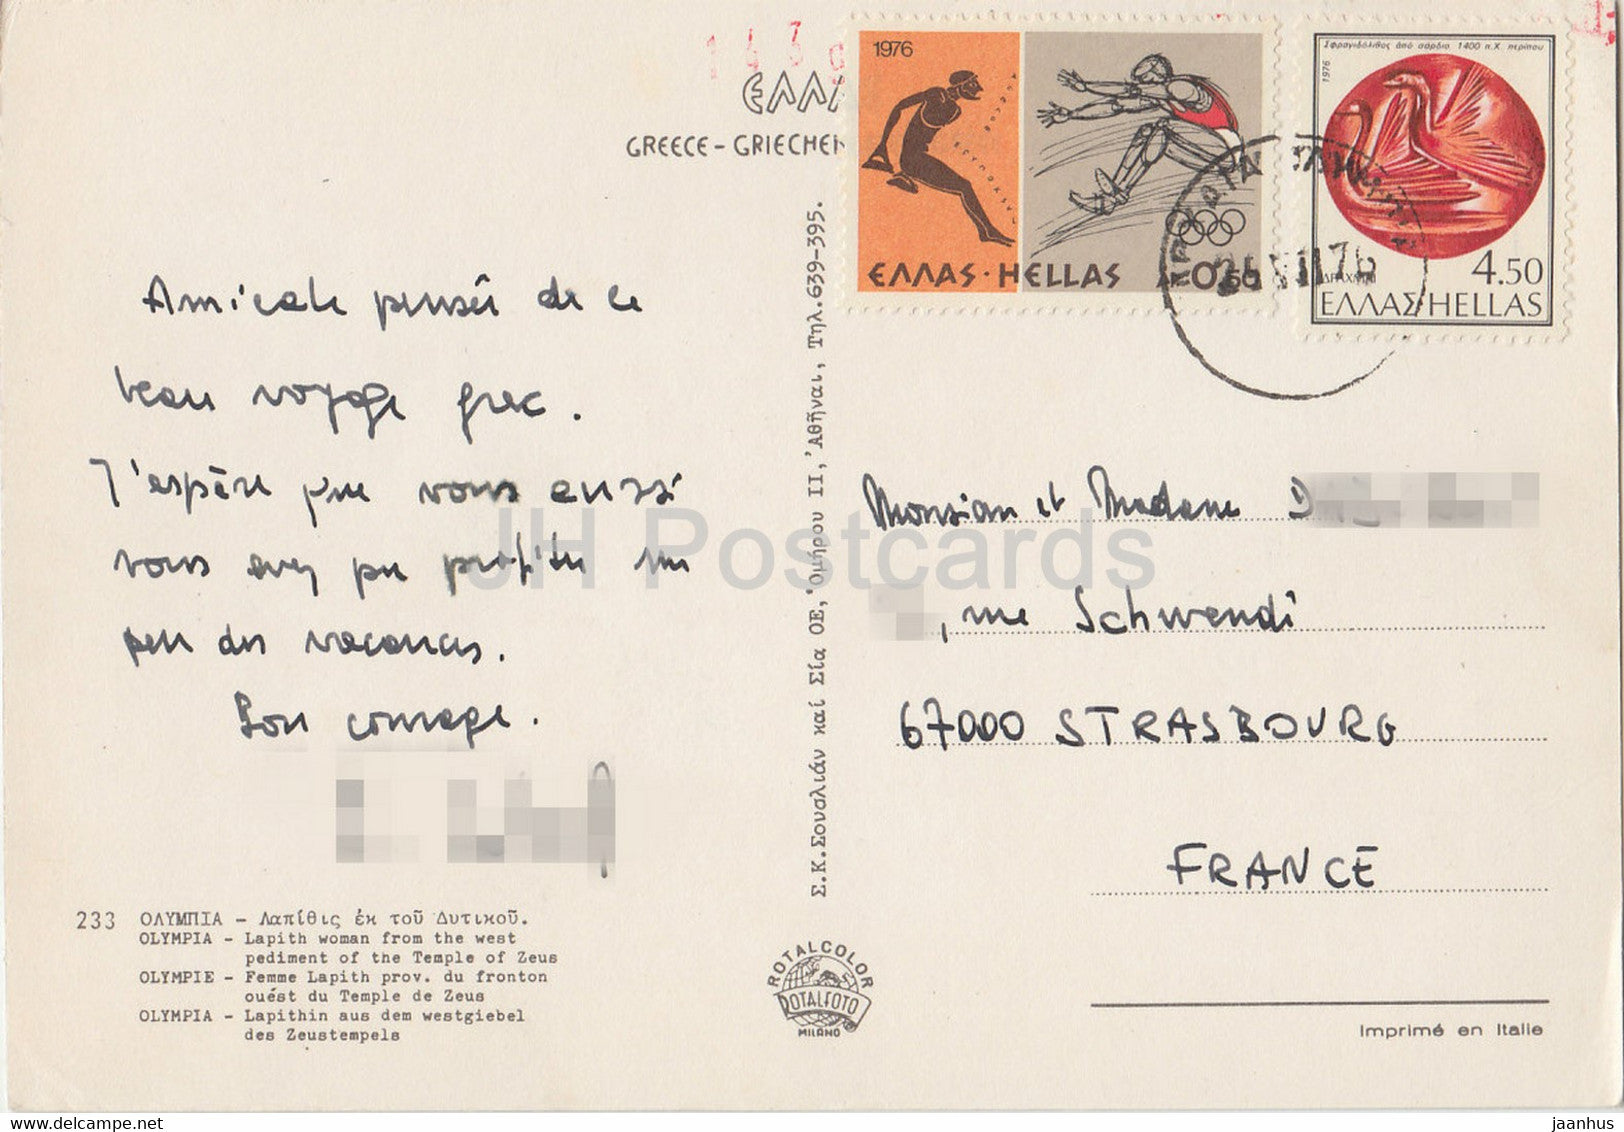 ΕΛΛΑ
GREECE - GRIECHEN
Amicale pensée de ce
beau voyage grec.
J'espère que vous aussi
vous avez pu profiter un
peu des vacances.
Bon courage.
233 ΟΛΥΜΠΙΑ - Λαπίθις ἐκ τοῦ Δυτικοῦ.
OLYMPIA - Lapith woman from the west
pediment of the Temple of Zeus
OLYMPIE - Femme Lapith prov. du fronton
ouést du Temple de Zeus
OLYMPIA - Lapithin aus dem westgiebel
des Zeustempels
Σ.Κ.Σουσλιάν καί Σία ΟΕ, Ὁμήρου ΙΙ, Ἀθῆναι, Τηλ. 639-395.
1976
ΕΛΛΑΣ · HELLAS 0,50
Σφραγιδόλιθος ἀπό σάρδιο 1400 π.Χ. περίπου
1976
4.50
ΕΛΛΑΣ HELLAS
Monsieur et Madame D
, rue Schwendi
67000 STRASBOURG
FRANCE
ROTALCOLOR
ROTALFOTO
MILANO
Imprimé en Italie
JH Postcards
jaanhus ecc-delcampe.net